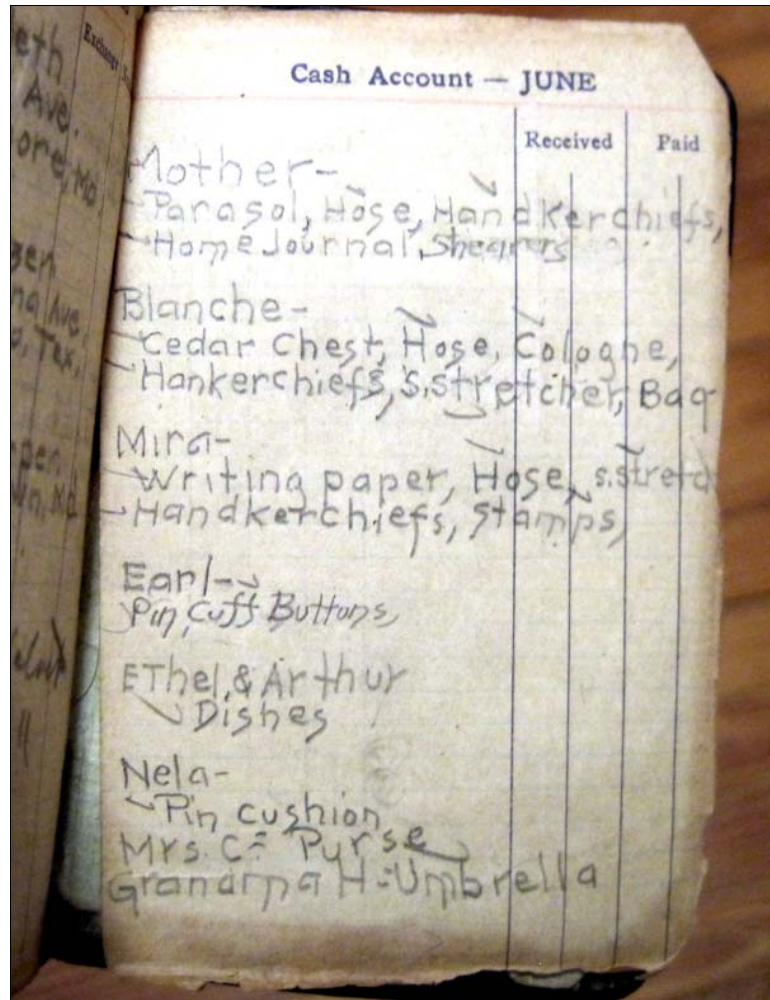 eth
Ave.
ore, Md.
gen
na Ave.
o, Tex.
pen
Md
Exchange
Cash Account — JUNE
Received Paid
Mother-
Parasol, Hose, Handkerchiefs,
Home Journal, Shearers
Blanche-
Cedar Chest, Hose, Cologne,
Hankerchiefs, S.stretcher, Bag
Mira-
Writing paper, Hose, s.stretch
Handkerchiefs, Stamps,
Earl-
Pin, Cuff Buttons,
EThel & Arthur
Dishes
Nela-
Pin cushion
Mrs. C- Purse
Grandma H-Umbrella